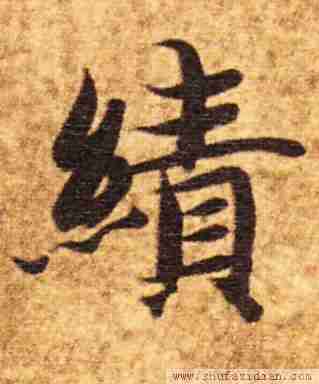 績
www.shufazidian.com